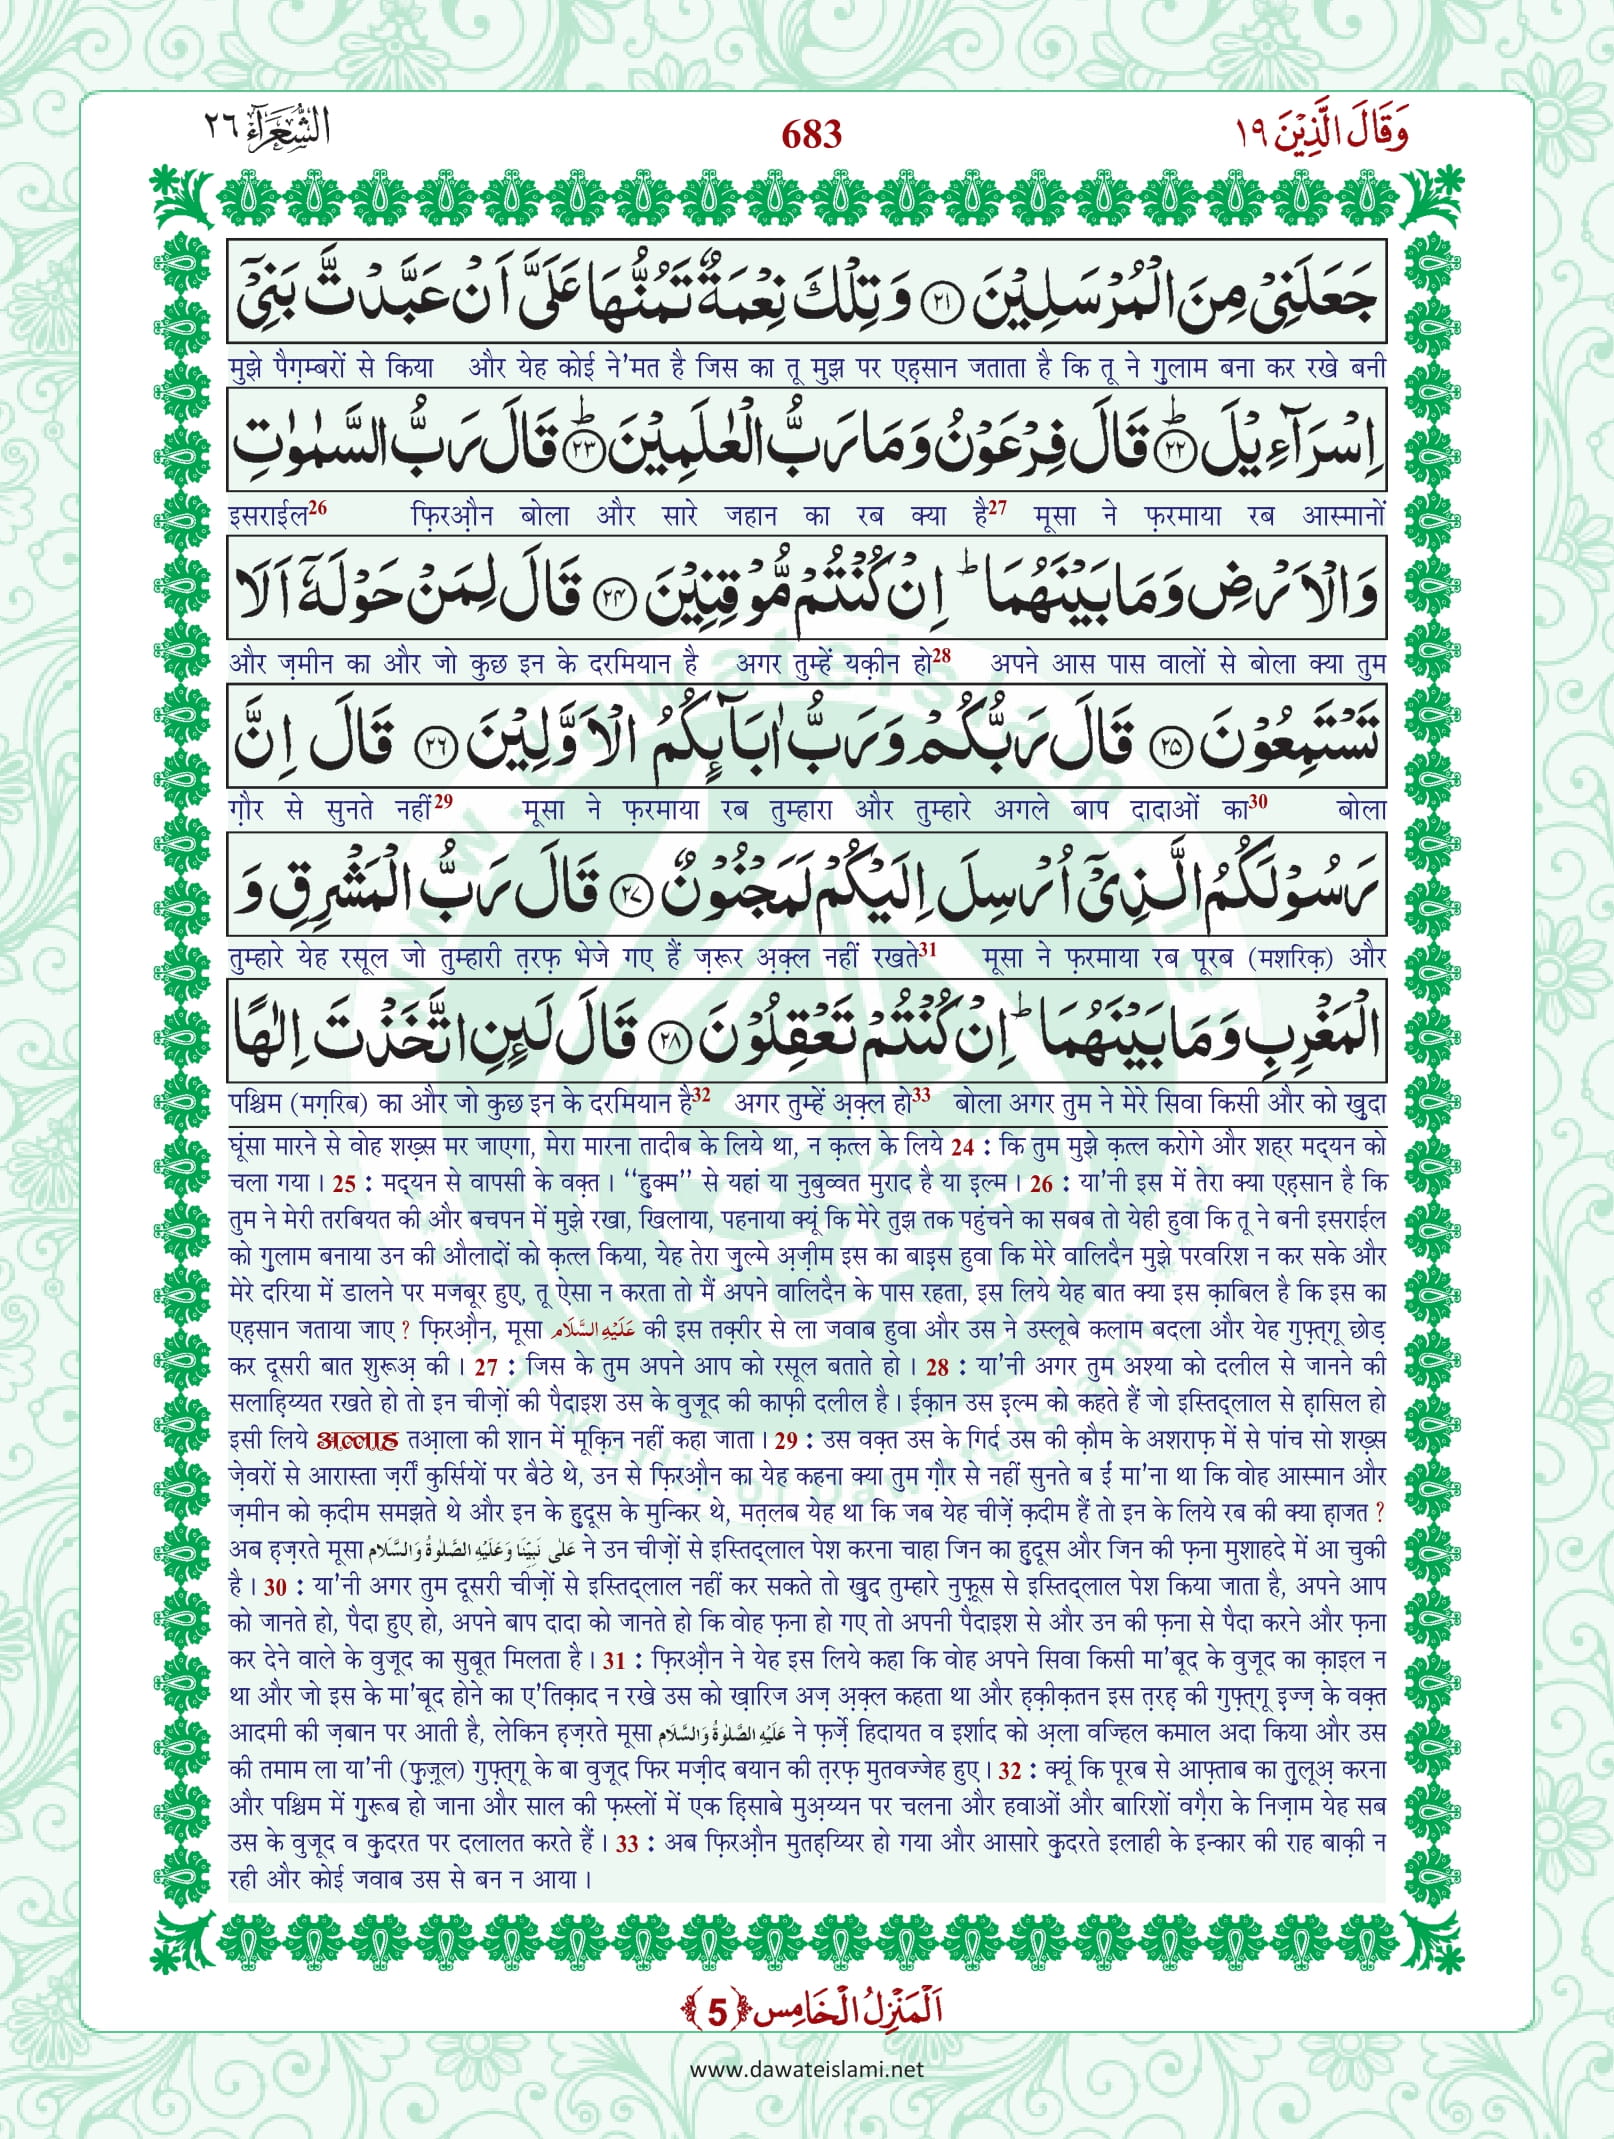 وَقَالَ الَّذِيْنَ ١٩ 683 الشُّعَرَآء ٢٦
جَعَلَنِيْ مِنَ الْمُرْسَلِيْنَ ﴿٢١﴾ وَ تِلْكَ نِعْمَةٌ تَمُنُّهَا عَلَيَّ اَنْ عَبَّدْتَّ بَنِيْٓ
मुझे पैग़म्बरों से किया और येह कोई ने'मत है जिस का तू मुझ पर एह़सान जताता है कि तू ने ग़ुलाम बना कर रखे बनी
اِسْرَآءِيْلَ ؕ﴿٢٢﴾ قَالَ فِرْعَوْنُ وَمَا رَبُّ الْعٰلَمِيْنَ ؕ﴿٢٣﴾ قَالَ رَبُّ السَّمٰوٰتِ
इसराईल26 फ़िरऔ़न बोला और सारे जहान का रब क्या है27 मूसा ने फ़रमाया रब आस्मानों
وَالْاَرْضِ وَمَا بَيْنَهُمَا ؕ اِنْ كُنْتُمْ مُّوْقِنِيْنَ ﴿٢٤﴾ قَالَ لِمَنْ حَوْلَهٗٓ اَلَا
और ज़मीन का और जो कुछ इन के दरमियान है अगर तुम्हें यक़ीन हो28 अपने आस पास वालों से बोला क्या तुम
تَسْتَمِعُوْنَ ﴿٢٥﴾ قَالَ رَبُّكُمْ وَرَبُّ اٰبَآىِٕكُمُ الْاَوَّلِيْنَ ﴿٢٦﴾ قَالَ اِنَّ
ग़ौर से सुनते नहीं29 मूसा ने फ़रमाया रब तुम्हारा और तुम्हारे अगले बाप दादाओं का30 बोला
رَسُوْلَكُمُ الَّذِيْٓ اُرْسِلَ اِلَيْكُمْ لَمَجْنُوْنٌ ﴿٢٧﴾ قَالَ رَبُّ الْمَشْرِقِ وَ
तुम्हारे येह रसूल जो तुम्हारी त़रफ़ भेजे गए हैं ज़रूर अ़क़्ल नहीं रखते31 मूसा ने फ़रमाया रब पूरब (मशरिक़) और
الْمَغْرِبِ وَمَا بَيْنَهُمَا ؕ اِنْ كُنْتُمْ تَعْقِلُوْنَ ﴿٢٨﴾ قَالَ لَىِٕنِ اتَّخَذْتَ اِلٰهًا
पश्चिम (मग़रिब) का और जो कुछ इन के दरमियान है32 अगर तुम्हें अ़क़्ल हो33 बोला अगर तुम ने मेरे सिवा किसी और को ख़ुदा
घूंसा मारने से वोह शख़्स मर जाएगा, मेरा मारना तादीब के लिये था, न क़त्ल के लिये 24 : कि तुम मुझे क़त्ल करोगे और शह्र मद्यन को
चला गया । 25 : मद्यन से वापसी के वक़्त । ‘‘हुक्म’’ से यहां या नुबुव्वत मुराद है या इ़ल्म । 26 : या'नी इस में तेरा क्या एह़सान है कि
तुम ने मेरी तरबियत की और बचपन में मुझे रखा, खिलाया, पहनाया क्यूं कि मेरे तुझ तक पहुंचने का सबब तो येही हुवा कि तू ने बनी इसराईल
को ग़ुलाम बनाया उन की औलादों को क़त्ल किया, येह तेरा ज़ुल्मे अ़ज़ीम इस का बाइ़स हुवा कि मेरे वालिदैन मुझे परवरिश न कर सके और
मेरे दरिया में डालने पर मजबूर हुए, तू ऐसा न करता तो मैं अपने वालिदैन के पास रहता, इस लिये येह बात क्या इस क़ाबिल है कि इस का
एह़सान जताया जाए ? फ़िरऔ़न, मूसा عَلَيْهِ السَّلَام की इस तक़रीर से ला जवाब हुवा और उस ने उस्लूबे कलाम बदला और येह गुफ़्त्गू छोड़
कर दूसरी बात शुरूअ़ की । 27 : जिस के तुम अपने आप को रसूल बताते हो । 28 : या'नी अगर तुम अश्या को दलील से जानने की
सलाहि़य्यत रखते हो तो इन चीज़ों की पैदाइश उस के वुजूद की काफ़ी दलील है । ईक़ान उस इ़ल्म को कहते हैं जो इस्तिद्लाल से ह़ासिल हो
इसी लिये अल्लाह तआ़ला की शान में मूक़िन नहीं कहा जाता । 29 : उस वक़्त उस के गिर्द उस की क़ौम के अशराफ़ में से पांच सो शख़्स
ज़ेवरों से आरास्ता ज़र्रीं कुर्सियों पर बैठे थे, उन से फ़िरऔ़न का येह कहना क्या तुम ग़ौर से नहीं सुनते ब ईं मा'ना था कि वोह आस्मान और
ज़मीन को क़दीम समझते थे और इन के हु़दूस के मुन्किर थे, मत़लब येह था कि जब येह चीज़ें क़दीम हैं तो इन के लिये रब की क्या ह़ाजत ?
अब ह़ज़रते मूसा عَلٰى نَبِيِّنَا وَعَلَيْهِ الصَّلٰوةُ وَالسَّلَام ने उन चीज़ों से इस्तिद्लाल पेश करना चाहा जिन का हु़दूस और जिन की फ़ना मुशाहदे में आ चुकी
है । 30 : या'नी अगर तुम दूसरी चीज़ों से इस्तिद्लाल नहीं कर सकते तो ख़ुद तुम्हारे नुफ़ूस से इस्तिद्लाल पेश किया जाता है, अपने आप
को जानते हो, पैदा हुए हो, अपने बाप दादा को जानते हो कि वोह फ़ना हो गए तो अपनी पैदाइश से और उन की फ़ना से पैदा करने और फ़ना
कर देने वाले के वुजूद का सुबूत मिलता है । 31 : फ़िरऔ़न ने येह इस लिये कहा कि वोह अपने सिवा किसी मा'बूद के वुजूद का क़ाइल न
था और जो इस के मा'बूद होने का ए'तिक़ाद न रखे उस को ख़ारिज अज़ अ़क़्ल कहता था और ह़क़ीक़तन इस त़रह़ की गुफ़्त्गू इ़ज्ज़ के वक़्त
आदमी की ज़बान पर आती है, लेकिन ह़ज़रते मूसा عَلَيْهِ الصَّلٰوةُ وَالسَّلَام ने फ़र्ज़े हिदायत व इर्शाद को अ़ला वज्हिल कमाल अदा किया और उस
की तमाम ला या'नी (फ़ुज़ूल) गुफ़्त्गू के बा वुजूद फिर मज़ीद बयान की त़रफ़ मुतवज्जेह हुए । 32 : क्यूं कि पूरब से आफ़्ताब का त़ुलूअ़ करना
और पश्चिम में ग़ुरूब हो जाना और साल की फ़स्लों में एक हि़साबे मुअ़य्यन पर चलना और हवाओं और बारिशों वग़ैरा के निज़ाम येह सब
उस के वुजूद व क़ुदरत पर दलालत करते हैं । 33 : अब फ़िरऔ़न मुतह़य्यिर हो गया और आसारे क़ुदरते इलाही के इन्कार की राह बाक़ी न
रही और कोई जवाब उस से बन न आया ।
اَلْمَنْزِلُ الْخَامِس ﴿5﴾
www.dawateislami.net